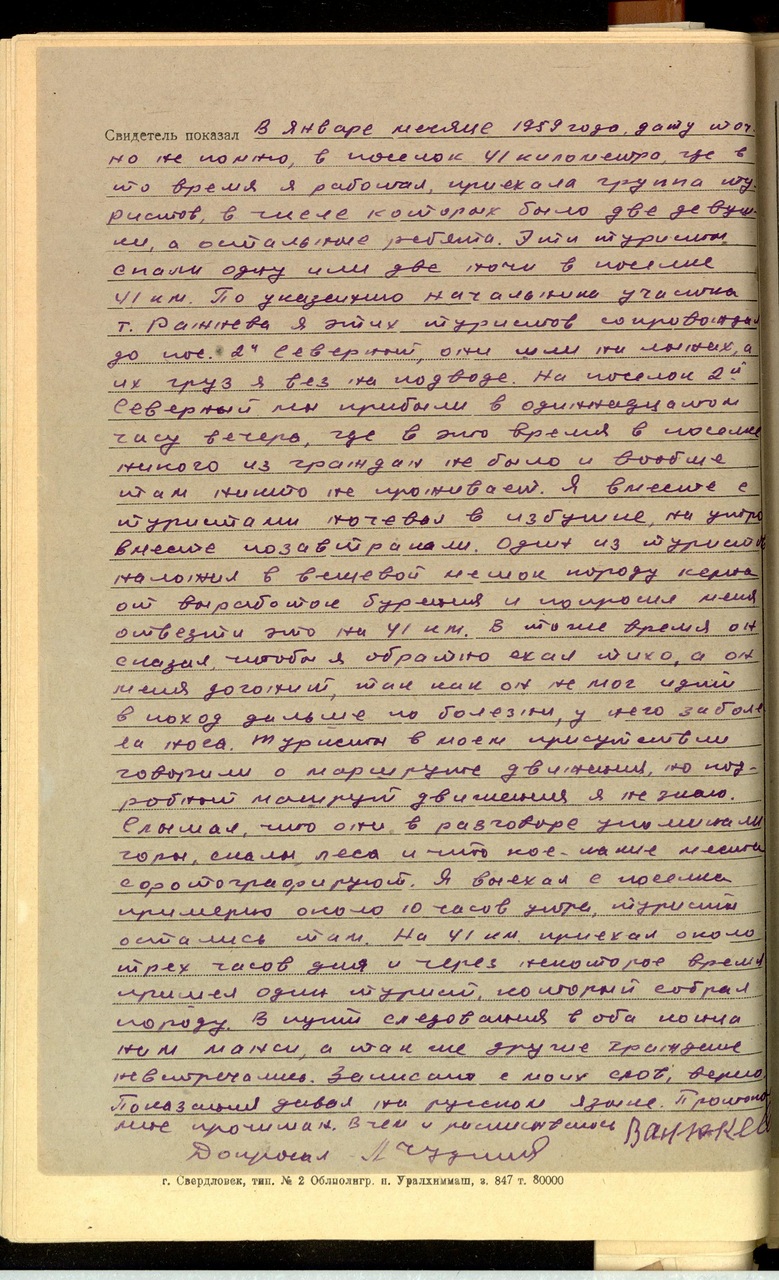 Свидетель показал В январе месяце 1959 года, дату точ-
но не помню, в поселок 41 километра, где в
то время я работал, приехала группа ту-
ристов, в числе которых было две девуш-
ки, а остальные ребята. Эти туристы
спали одну или две ночи в поселке
41 км. По указанию начальника участка
т. Ражнева я этих туристов сопровождал
до пос. 2й Северный, они шли на лыжах, а
их груз я вез на подводе. На поселок 2й
Северный мы прибыли в одиннадцатом
часу вечера, где в это время в поселке
никого из граждан не было и вообще
там никто не проживает. Я вместе с
туристами ночевал в избушке, на утро
вместе позавтракали. Один из туристов
наложил в вещевой мешок породу керна
от выработок бурения и попросил меня
отвезти это на 41 км. В тоже время он
сказал, чтобы я обратно ехал тихо, а он
меня догонит, так как он не мог идти
в поход дальше по болезни, у него заболе-
ла нога. Туристы в моем присутствии
говорили о маршруте движения, но под-
робный маршрут движения я не знаю.
Слышал, что они в разговоре упоминали
горы, скалы, леса и что кое-какие места
сфотографируют. Я выехал с поселка
примерно около 10 часов утра, туристы
остались там. На 41 км. приехал около
трех часов дня и через некоторое время
пришел один турист, который собрал
породу. В пути следования в оба конца
нам манси, а так же другие граждане
не встречались. Записано с моих слов, верно.
Показания давал на русском языке. Протокол
мне прочитан, в чем и расписываюсь
Допросил
г. Свердловск, тип. № 2 Облполигр. п. Уралхиммаш, з. 847 т. 80000